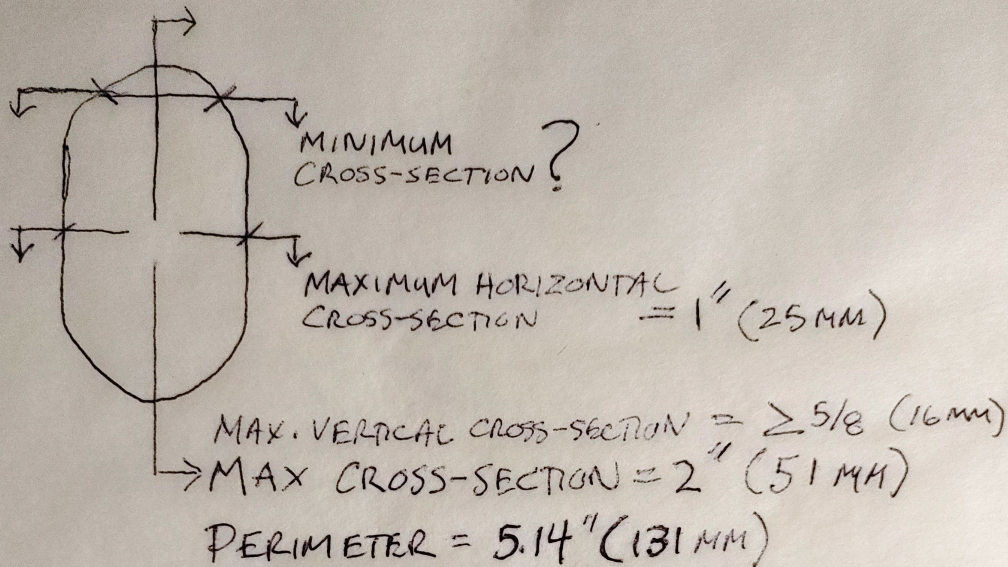 MINIMUM
CROSS-SECTION ?
MAXIMUM HORIZONTAL
CROSS-SECTION = 1" (25 MM)
MAX. VERTICAL CROSS-SECTION = ≥ 5/8 (16 MM)
MAX CROSS-SECTION = 2" (51 MM)
PERIMETER = 5.14" (131 MM)